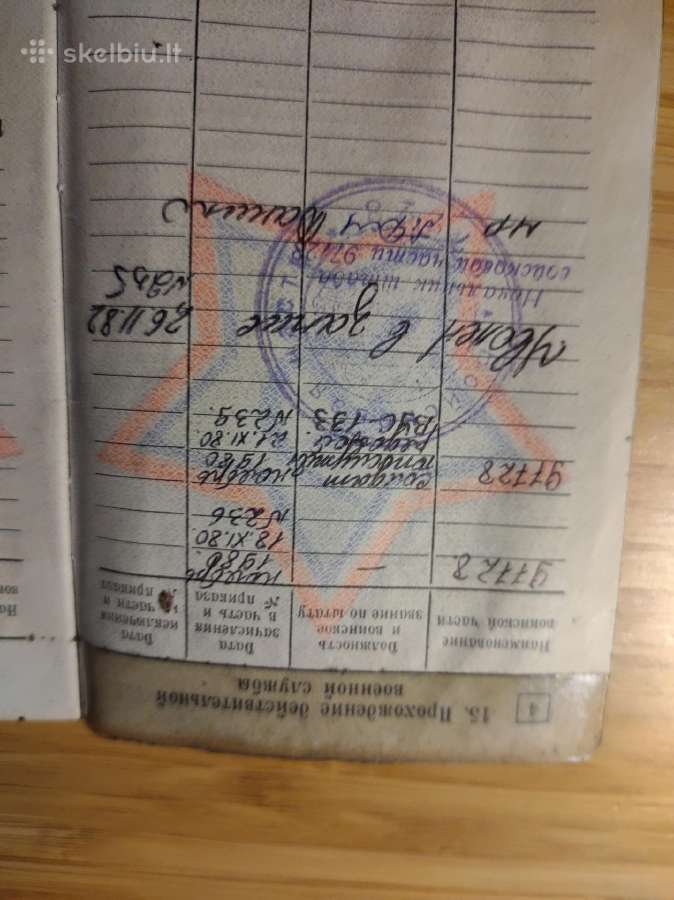 skelbiu.lt
4
15. Прохождение действительной
военной службы
Наименование
воинской части
Должность
и воинское
звание по штату
Дата
зачисления
в часть и
№ приказа
Дата
исключения
из части и
№ приказа
97728.
—
ноябрь
1980.
18.XI.80
№236
97728
солдат
рядовой
ВУС-133
ноябрь
1980
21.XI.80.
№239.
Уволен в запас
26.11.82
№265
Начальник штаба
войсковой части 97728